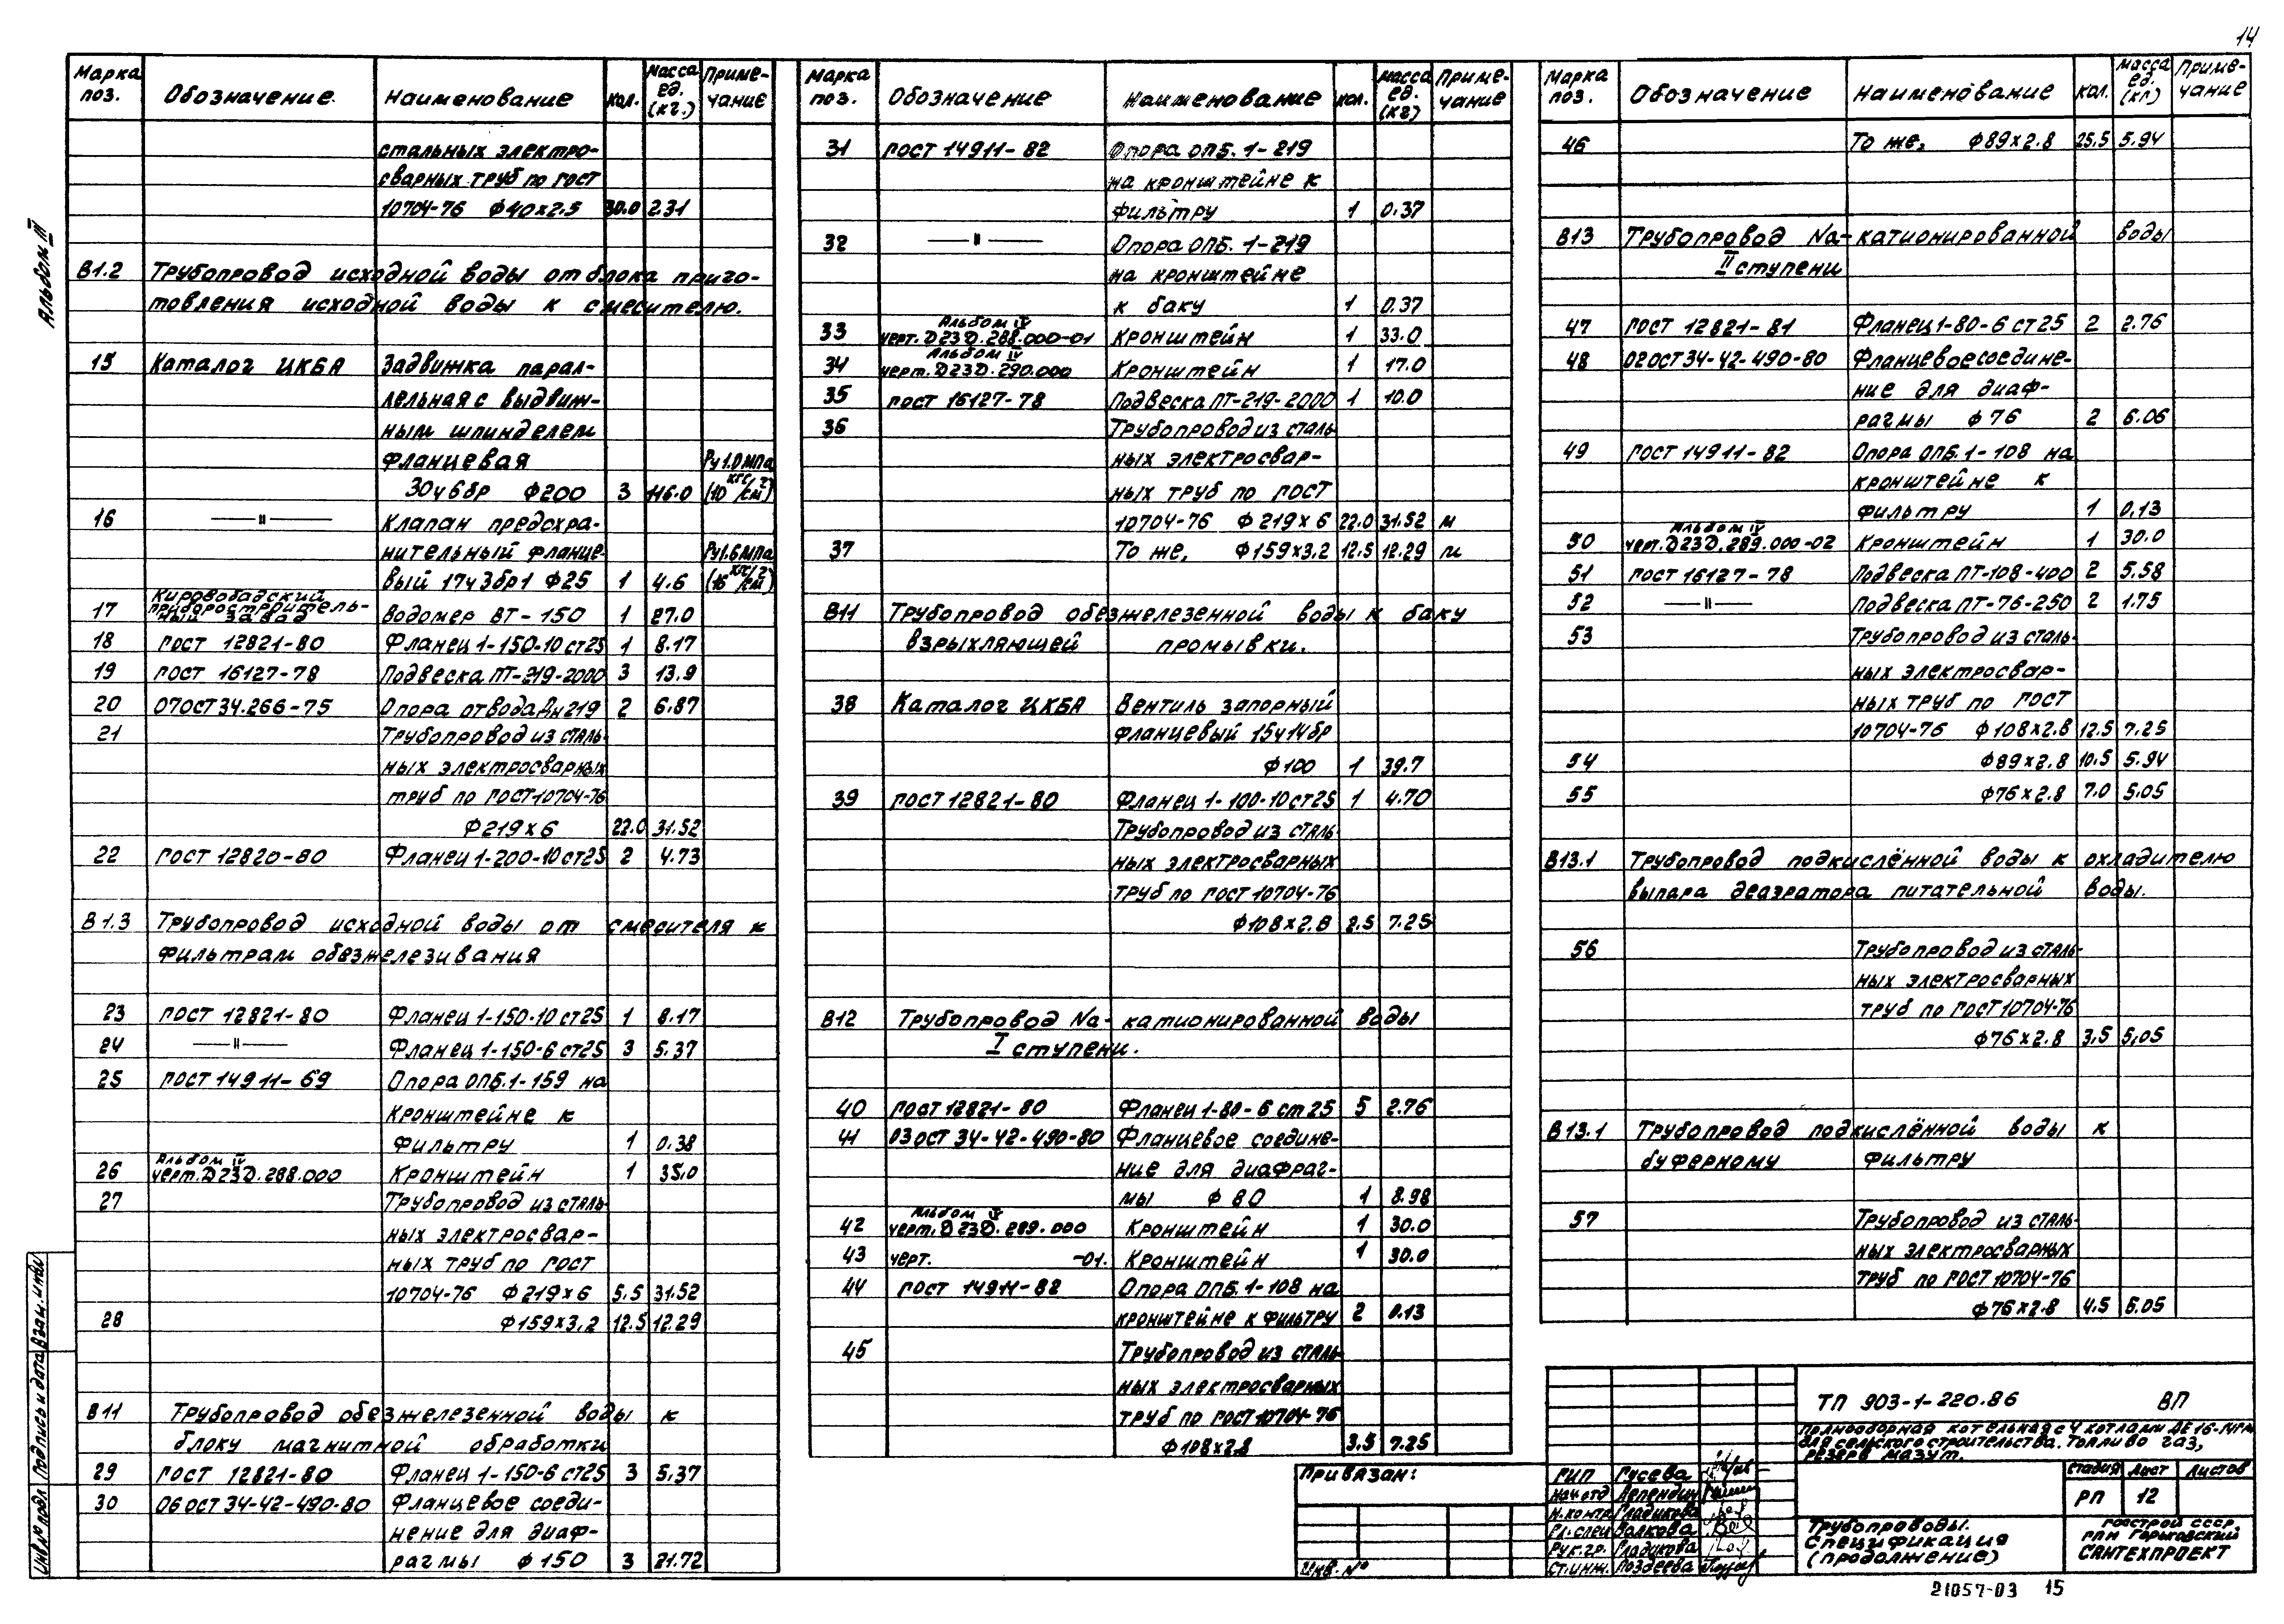 14
Альбом III
Марка поз. Обозначение Наименование кол. масса ед. (кг.) Приме-чание
стальных электро-
сварных труб по ГОСТ
10704-76 Ф40×2.5 30.0 2.31
В1.2 Трубопровод исходной воды от блока приго-
товления исходной воды к смесителю.
15 Каталог ЦКБА Задвижка парал-
лельная с выдвиж-
ным шпинделем
фланцевая Ру1.0мпа
30ч6бр Ф200 3 116.0 (10 кгс/см²)
16 —"— Клапан предохра-
нительный фланце- Ру1.6мпа
вый 17ч3бр1 Ф25 1 4.6 (16 кгс/см²)
17 Кировобадский приборостроитель-ный завод Водомер ВТ-150 1 27.0
18 ГОСТ 12821-80 Фланец 1-150-10 ст25 1 8.17
19 ГОСТ 16127-78 Подвеска ПТ-219-2000 3 13.9
20 07ОСТ34.266-75 Опора отвода Дн219 2 6.87
21 Трубопровод из сталь-
ных электросварных
труб по ГОСТ10704-76
Ф219×6 22.0 31.52
22 ГОСТ 12820-80 Фланец 1-200-10 ст25 2 4.73
В1.3 Трубопровод исходной воды от смесителя к
фильтрам обезжелезивания
23 ГОСТ 12821-80 Фланец 1-150-10 ст25 1 8.17
24 —"— Фланец 1-150-6 ст25 3 5.37
25 ГОСТ 14911-69 Опора ОПБ.1-159 на
кронштейне к
фильтру 1 0.38
26 Альбом IV черт.Д23D.288.000 Кронштейн 1 35.0
27 Трубопровод из сталь-
ных электросвар-
ных труб по ГОСТ
10704-76 Ф219×6 5.5 31.52
28 Ф159×3.2 12.5 12.29
В11 Трубопровод обезжелезенной воды к
блоку магнитной обработки
29 ГОСТ 12821-80 Фланец 1-150-6 ст25 3 5.37
30 06 ОСТ 34-42-490-80 Фланцевое соеди-
нение для диаф-
рагмы Ф150 3 21.72
Марка поз. Обозначение Наименование кол. масса ед. (кг) Приме-чание
31 ГОСТ 14911-82 Опора ОПБ.1-219
на кронштейне к
фильтру 1 0.37
32 —"— Опора ОПБ.1-219
на кронштейне
к баку 1 0.37
33 Альбом IV черт.Д23D.288.000-01 Кронштейн 1 33.0
34 Альбом IV черт.Д23D.290.000 Кронштейн 1 17.0
35 ГОСТ 16127-78 Подвеска ПТ-219-2000 1 10.0
36 Трубопровод из сталь-
ных электросвар-
ных труб по ГОСТ
10704-76 Ф219×6 22.0 31.52 м
37 То же, Ф159×3.2 12.5 12.29 м
В11 Трубопровод обезжелезенной воды к баку
взрыхляющей промывки.
38 Каталог ЦКБА Вентиль запорный
фланцевый 15ч14бр
Ф100 1 39.7
39 ГОСТ 12821-80 Фланец 1-100-10 ст25 1 4.70
Трубопровод из сталь-
ных электросварных
труб по ГОСТ10704-76
Ф108×2.8 2.5 7.25
В12 Трубопровод Na-катионированной воды
I ступени.
40 ГОСТ 12821-80 Фланец 1-80-6 ст25 5 2.76
41 03 ОСТ 34-42-490-80 Фланцевое соедине-
ние для диафраг-
мы Ф80 1 8.98
42 Альбом IV черт.Д23D.289.000 Кронштейн 1 30.0
43 черт. -01. Кронштейн 1 30.0
44 ГОСТ 14911-82 Опора ОПБ.1-108 на
кронштейне к фильтру 2 0.13
45 Трубопровод из сталь-
ных электросварных
труб по ГОСТ10704-76
Ф108×2.8 3.5 7.25
Марка поз. Обозначение Наименование кол. масса ед. (кг) Приме-чание
46 То же, Ф89×2.8 25.5 5.94
В13 Трубопровод Na-катионированной воды
II ступени
47 ГОСТ 12821-81 Фланец 1-80-6 ст25 2 2.76
48 02ОСТ34-42-490-80 Фланцевое соедине-
ние для диаф-
рагмы Ф76 2 6.06
49 ГОСТ 14911-82 Опора ОПБ.1-108 на
кронштейне к
фильтру 1 0.13
50 Альбом IV черт.Д23D.289.000-02 Кронштейн 1 30.0
51 ГОСТ 16127-78 Подвеска ПТ-108-400 2 5.58
52 —"— Подвеска ПТ-76-250 2 1.75
53 Трубопровод из сталь-
ных электросвар-
ных труб по ГОСТ
10704-76 Ф108×2.8 12.5 7.25
54 Ф89×2.8 10.5 5.94
55 Ф76×2.8 7.0 5.05
В13.1 Трубопровод подкислённой воды к охладителю
выпара деаэратора питательной воды.
56 Трубопровод из сталь-
ных электросварных
труб по ГОСТ10704-76
Ф76×2.8 3.5 5,05
В13.1 Трубопровод подкислённой воды к
буферному фильтру
57 Трубопровод из сталь-
ных электросварных
труб по ГОСТ10704-76
Ф76×2.8 4.5 5.05
ТП 903-1-220.86 ВП
Полносборная котельная с 4 котлами ДЕ16-14ГМ
для сельского строительства. Топливо газ,
резерв мазут.
Стадия Лист Листов
РП 12
Трубопроводы.
Спецификация
(продолжение)
Госстрой СССР
ГПИ Горьковский
САНТЕХПРОЕКТ
Привязан:
Инв. №
ГИП Гусева
Нач.отд
Н.контр. Гладикова
Гл.спец Волкова
Рук.гр. Гладикова
Ст.инж. Поздеева
Инв№подл Подпись и дата Взам.инв№
21057-03 15